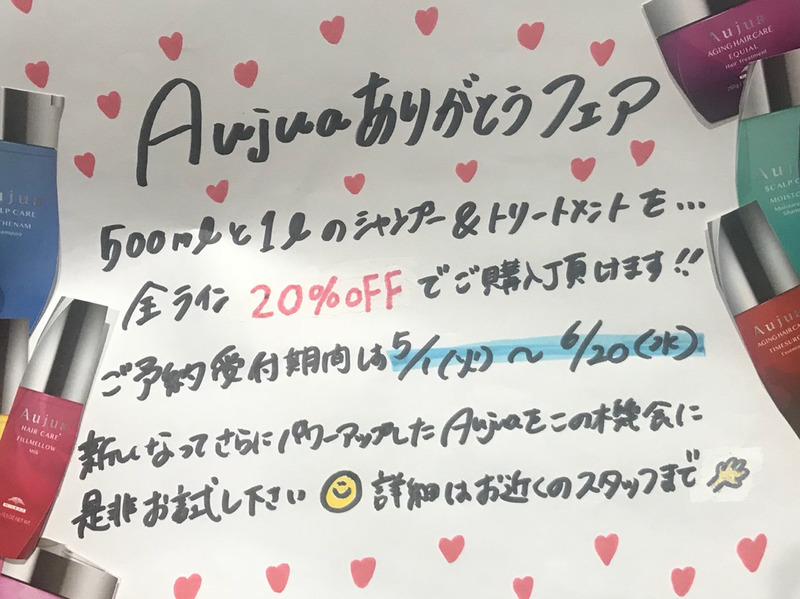 Aujuaありがとうフェア
500mlと1lのシャンプー&トリートメントを...
全ライン 20%OFFでご購入頂けます!!
ご予約受付期間は5/1(火)〜6/20(水)
新しくなってさらにパワーアップしたAujuaをこの機会に
是非お試し下さい 詳細はお近くのスタッフまで
Aujua
AGING HAIR CARE
EQUIAL
Hair Treatment
Aujua
SCALP CARE
Aujua
AGING HAIR CARE
TIMESURGE
Aujua
HAIR CARE
FILLMELLOW
Milk